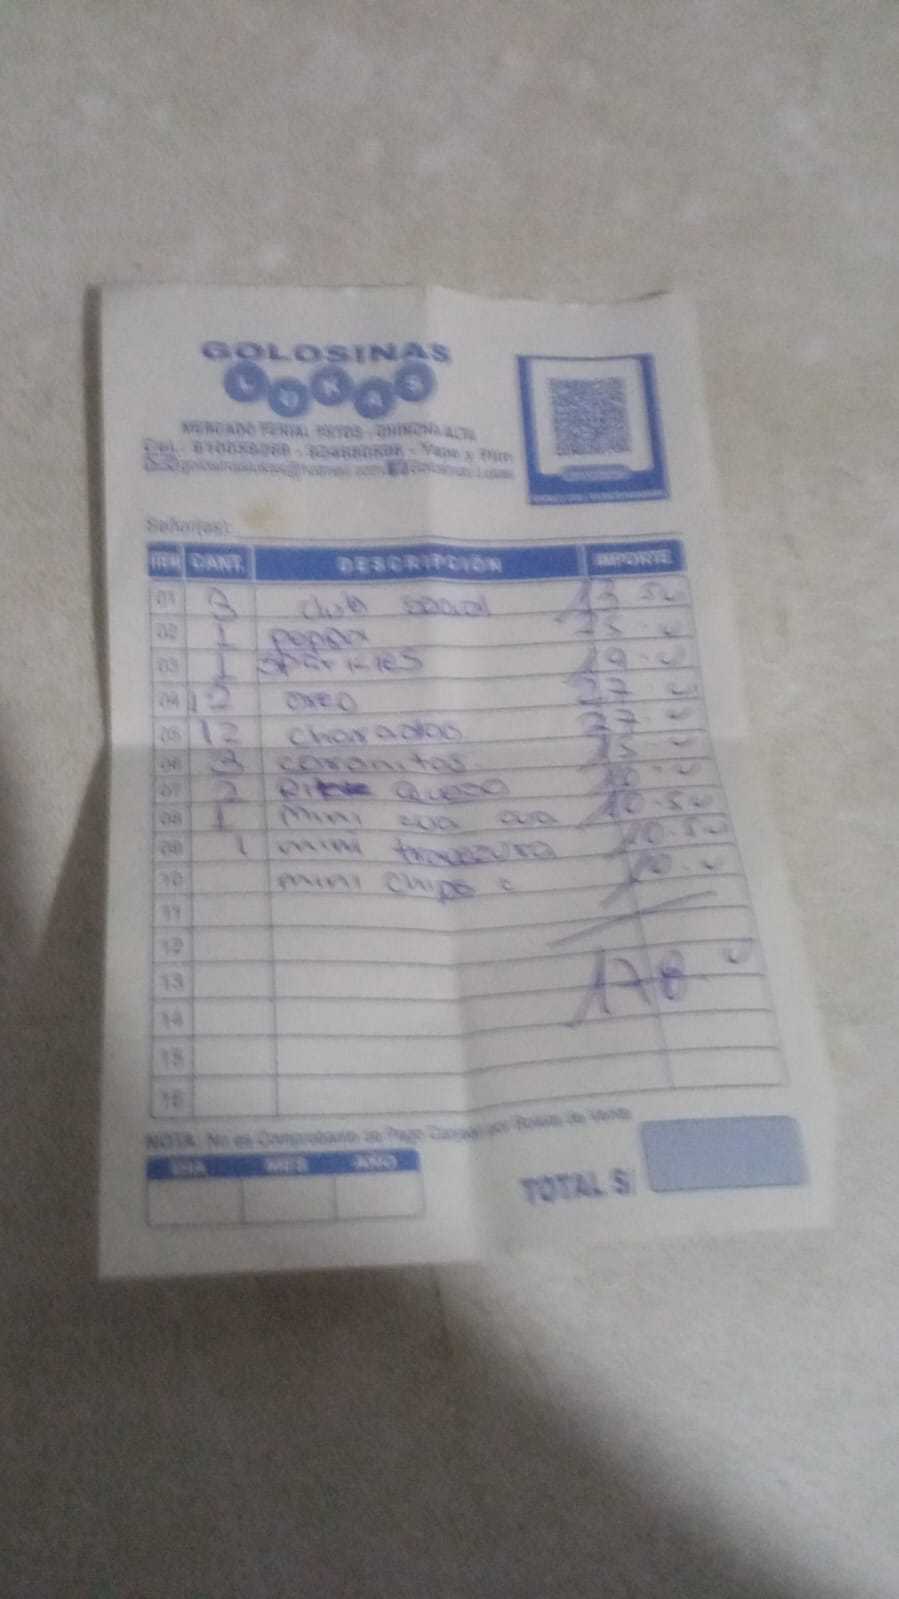 GOLOSINAS
LUKAS
MERCADO FERIAL CHINCHA ALTA
Cel.: Yape y Plin
Señor(es):
ITEM CANT. DESCRIPCIÓN IMPORTE
01 3 club social 13.50
02 1 25.00
03 1 19.00
04 12 oreo 27.00
05 12 charadas 27.00
06 3 coronitas 15.00
07 2 queso 10.00
08 1 mini cua cua 10.50
09 1 mini travezura 10.50
10 mini chips c 10.00
11
12
13 178.00
14
15
16
NOTA: No es Comprobante de Pago Canjear por Boleta de Venta
DIA MES AÑO
TOTAL S/